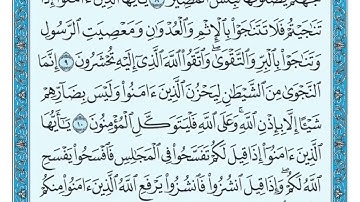 جَهَنَّمُ يَصْلَوْنَهَا فَبِئْسَ ٱلْمَصِيرُ ٨ يَٰٓأَيُّهَا ٱلَّذِينَ ءَامَنُوٓا۟ إِذَا
تَنَٰجَيْتُمْ فَلَا تَتَنَٰجَوْا۟ بِٱلْإِثْمِ وَٱلْعُدْوَٰنِ وَمَعْصِيَتِ ٱلرَّسُولِ
وَتَنَٰجَوْا۟ بِٱلْبِرِّ وَٱلتَّقْوَىٰ ۖ وَٱتَّقُوا۟ ٱللَّهَ ٱلَّذِىٓ إِلَيْهِ تُحْشَرُونَ ٩ إِنَّمَا
ٱلنَّجْوَىٰ مِنَ ٱلشَّيْطَٰنِ لِيَحْزُنَ ٱلَّذِينَ ءَامَنُوا۟ وَلَيْسَ بِضَآرِّهِمْ
شَيْـًٔا إِلَّا بِإِذْنِ ٱللَّهِ ۚ وَعَلَى ٱللَّهِ فَلْيَتَوَكَّلِ ٱلْمُؤْمِنُونَ ١٠ يَٰٓأَيُّهَا
ٱلَّذِينَ ءَامَنُوٓا۟ إِذَا قِيلَ لَكُمْ تَفَسَّحُوا۟ فِى ٱلْمَجَٰلِسِ فَٱفْسَحُوا۟ يَفْسَحِ
ٱللَّهُ لَكُمْ ۖ وَإِذَا قِيلَ ٱنشُزُوا۟ فَٱنشُزُوا۟ يَرْفَعِ ٱللَّهُ ٱلَّذِينَ ءَامَنُوا۟ مِنكُمْ